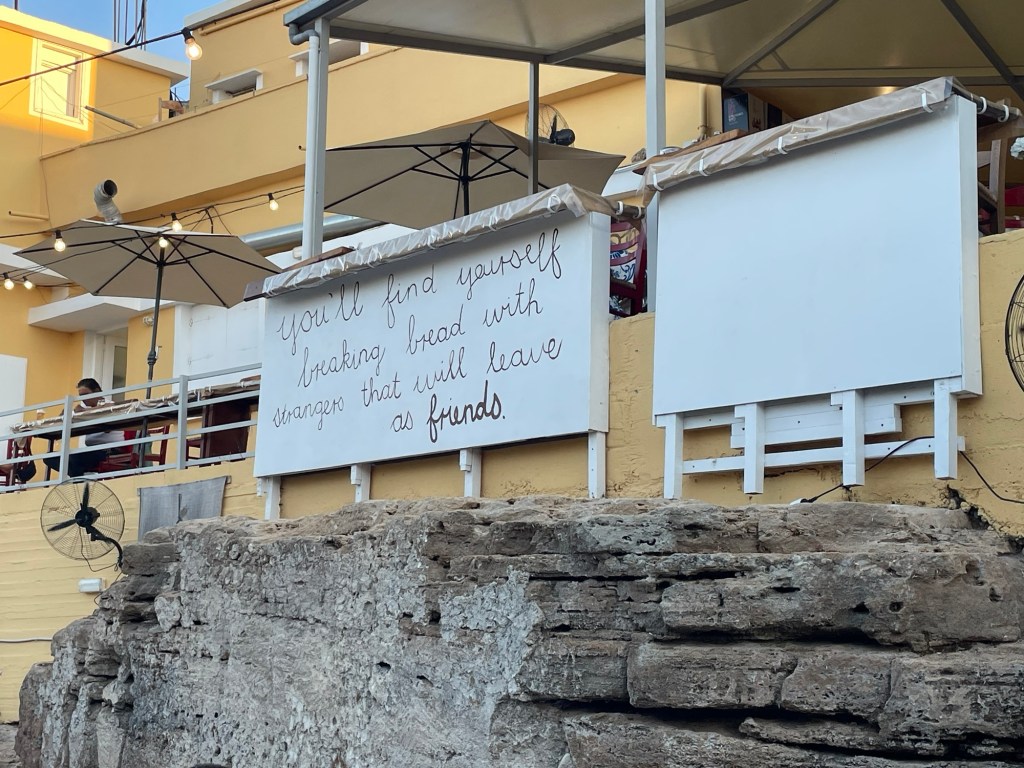 you'll find yourself
breaking bread with
strangers that will leave
as friends.